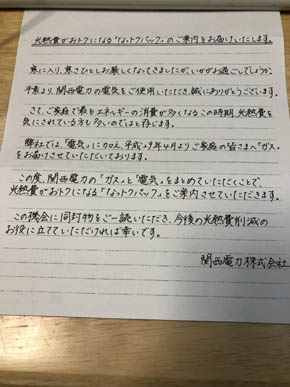 光熱費がおトクになる「なっトクパック」のご案内をお届けいたします。
寒に入り、寒さひとしお厳しくなってきましたが、いかがお過ごしでしょうか。
平素より、関西電力の電気をご使用いただき、誠にありがとうございます。
さて、ご家庭で最もエネルギーの消費が多くなるこの時期、光熱費を
気にされている方も多いのではと存じます。
弊社では、「電気」にカロえ、平成29年4月よりご家庭の皆さまへ「ガス」
をお届けさせていただいております。
この度、関西電力の「ガス」と「電気」をまとめていただくことで、
光熱費がおトクになる「なっトクパック」をご案内させていただきます。
この機会に同封物をご一読いただき、今後の光熱費削減の
お役に立てていただければ幸いです。
関西電力株式会社